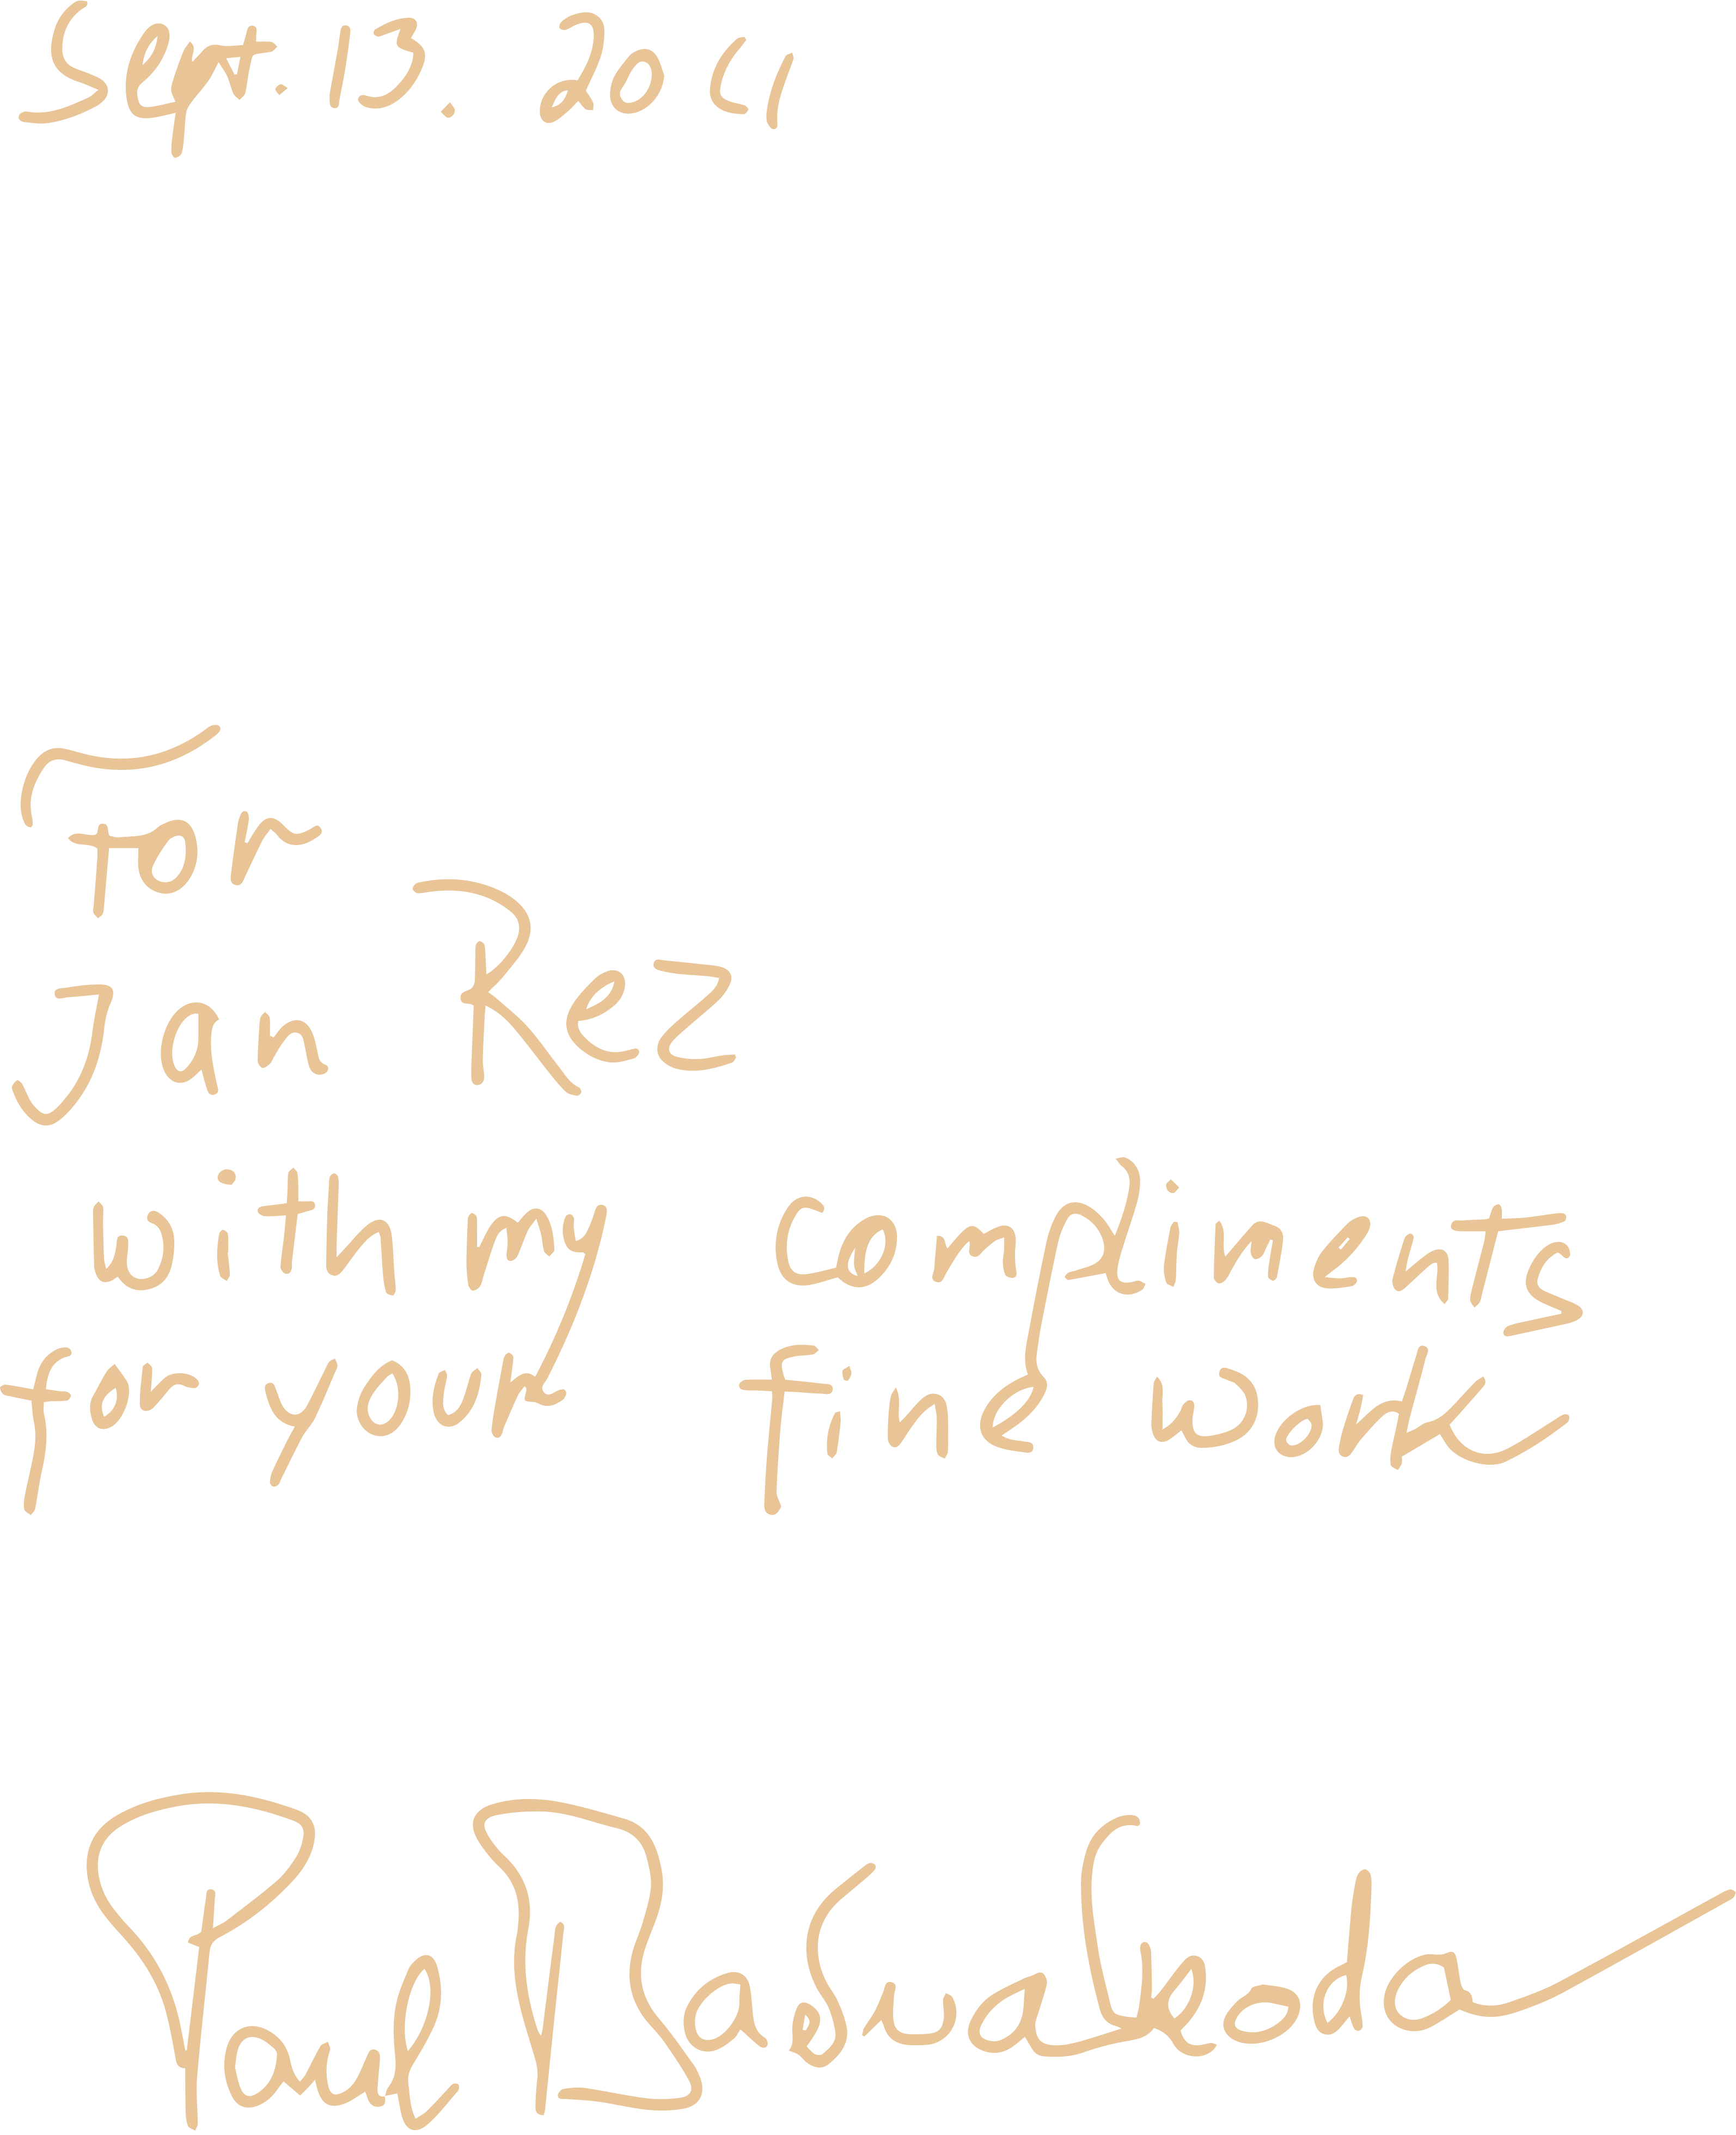 Sept. 13. 2011
For
Jan Rez
with my compliments
for your fine work
Paul